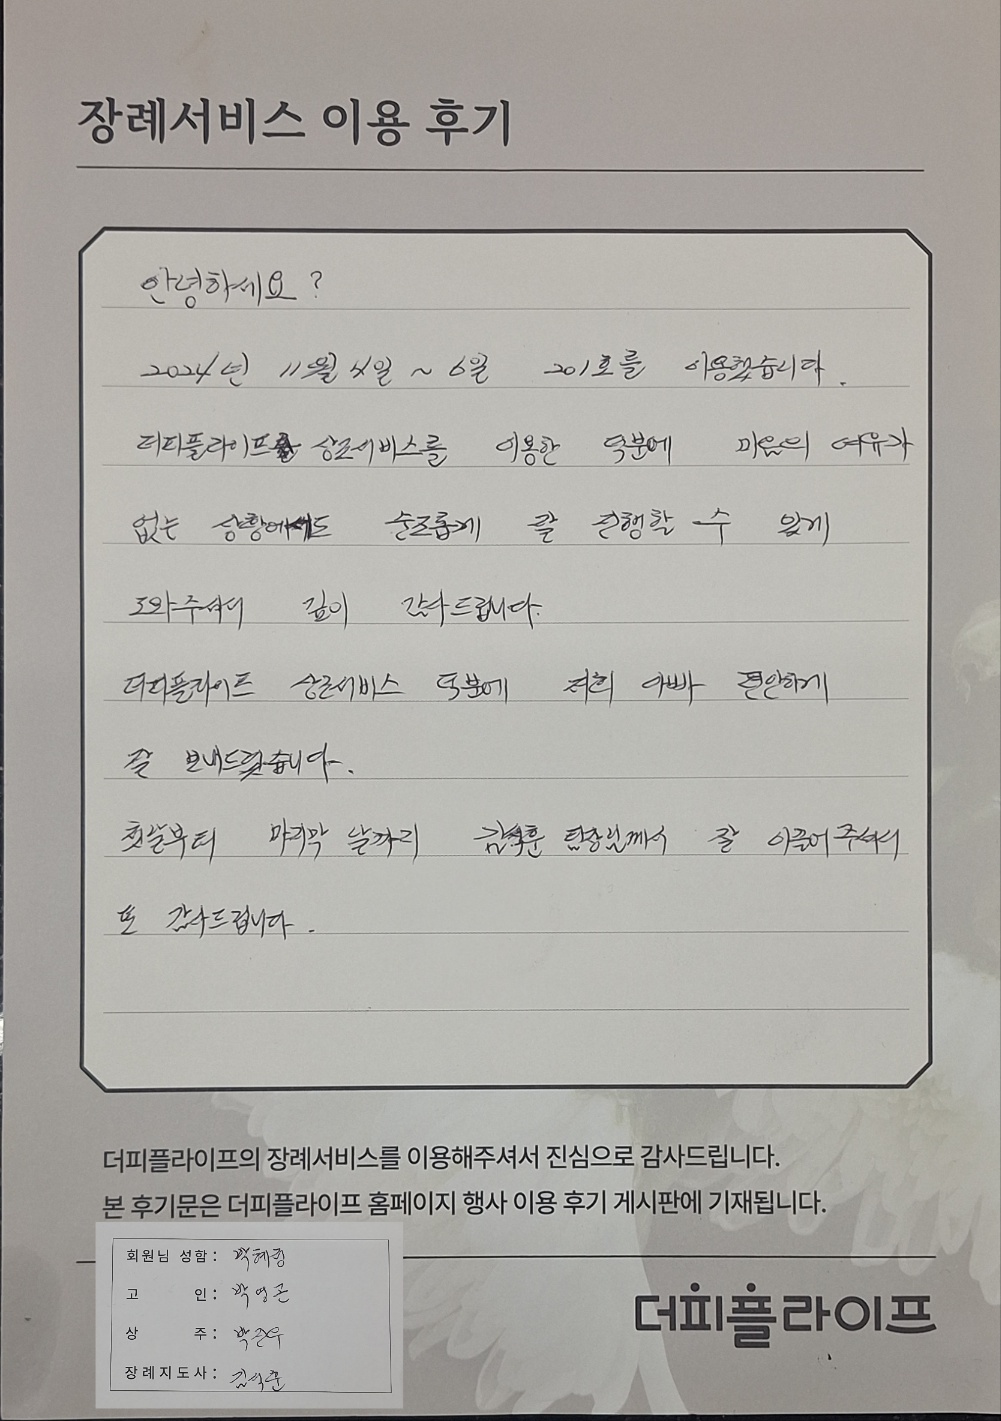 장례서비스 이용 후기
안녕하세요?
2024년 11월 4일 ~ 6일 201호를 이용했습니다.
더피플라이프 상조서비스를 이용한 덕분에 마음의 여유가
없는 상황에서도 순조롭게 잘 진행할 수 있게
도와주셔서 깊이 감사드립니다.
더피플라이프 상조서비스 덕분에 저희 아빠 편안하게
잘 보내드렸습니다.
첫날부터 마지막 날까지 김석훈 팀장님께서 잘 이끌어주셔서
또 감사드립니다.
더피플라이프의 장례서비스를 이용해주셔서 진심으로 감사드립니다.
본 후기문은 더피플라이프 홈페이지 행사 이용 후기 게시판에 기재됩니다.
회원님 성함 :
고 인 : 박영근
상 주 :
장례지도사 : 김석훈
더피플라이프